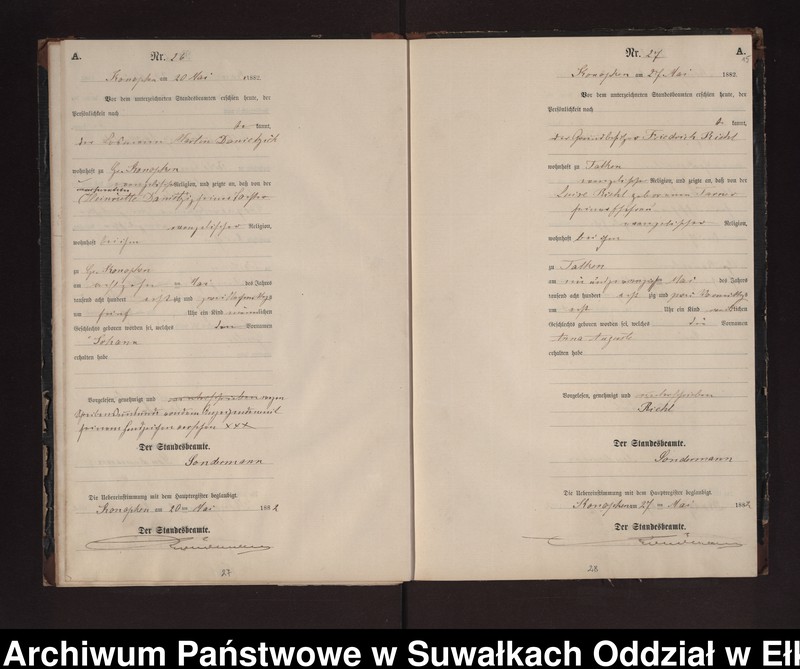 A.
Nr. 26
Konopken am 20 Mai 1882.
Vor dem unterzeichneten Standesbeamten erschien heute, der
Persönlichkeit nach
be kannt,
der Losmann Martin
wohnhaft zu Gr. Konopken
evangelischer Religion, und zeigte an, daß von der
Henriette
evangelischer Religion,
wohnhaft bei ihm
zu Gr. Konopken
am achtzehn ten Mai des Jahres
tausend acht hundert acht zig und zwei Nachmittags
um fünf Uhr ein Kind männlichen
Geschlechts geboren worden sei, welches den Vornamen
Johann
erhalten habe
Vorgelesen, genehmigt und unterschrieben wegen
Schreibensunkunde von dem Anzeigenden mit
seinem Handzeichen versehen XXX
Der Standesbeamte.
Sondermann
Die Uebereinstimmung mit dem Hauptregister beglaubigt.
Konopken am 20 ten Mai 1882
Der Standesbeamte.
Sondermann
27
A.
Nr. 27
Konopken am 27 Mai 1882.
Vor dem unterzeichneten Standesbeamten erschien heute, der
Persönlichkeit nach
be kannt,
der Grundbesitzer Friedrich Riehl
wohnhaft zu Talken
evangelischer Religion, und zeigte an, daß von der
Luise Riehl geborenen
seiner Ehefrau
evangelischer Religion,
wohnhaft bei ihm
zu Talken
am ein und zwanzigsten Mai des Jahres
tausend acht hundert acht zig und zwei Vormittags
um acht Uhr ein Kind weiblichen
Geschlechts geboren worden sei, welches die Vornamen
Anna Auguste
erhalten habe
Vorgelesen, genehmigt und unterschrieben
Riehl
Der Standesbeamte.
Sondermann
Die Uebereinstimmung mit dem Hauptregister beglaubigt.
Konopken am 27 ten Mai 1882
Der Standesbeamte.
Sondermann
28
Archiwum Państwowe w Suwałkach Oddział w Eł